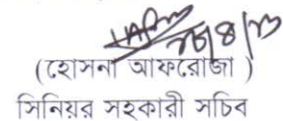 (হোসনা আফরোজা )
সিনিয়র সহকারী সচিব